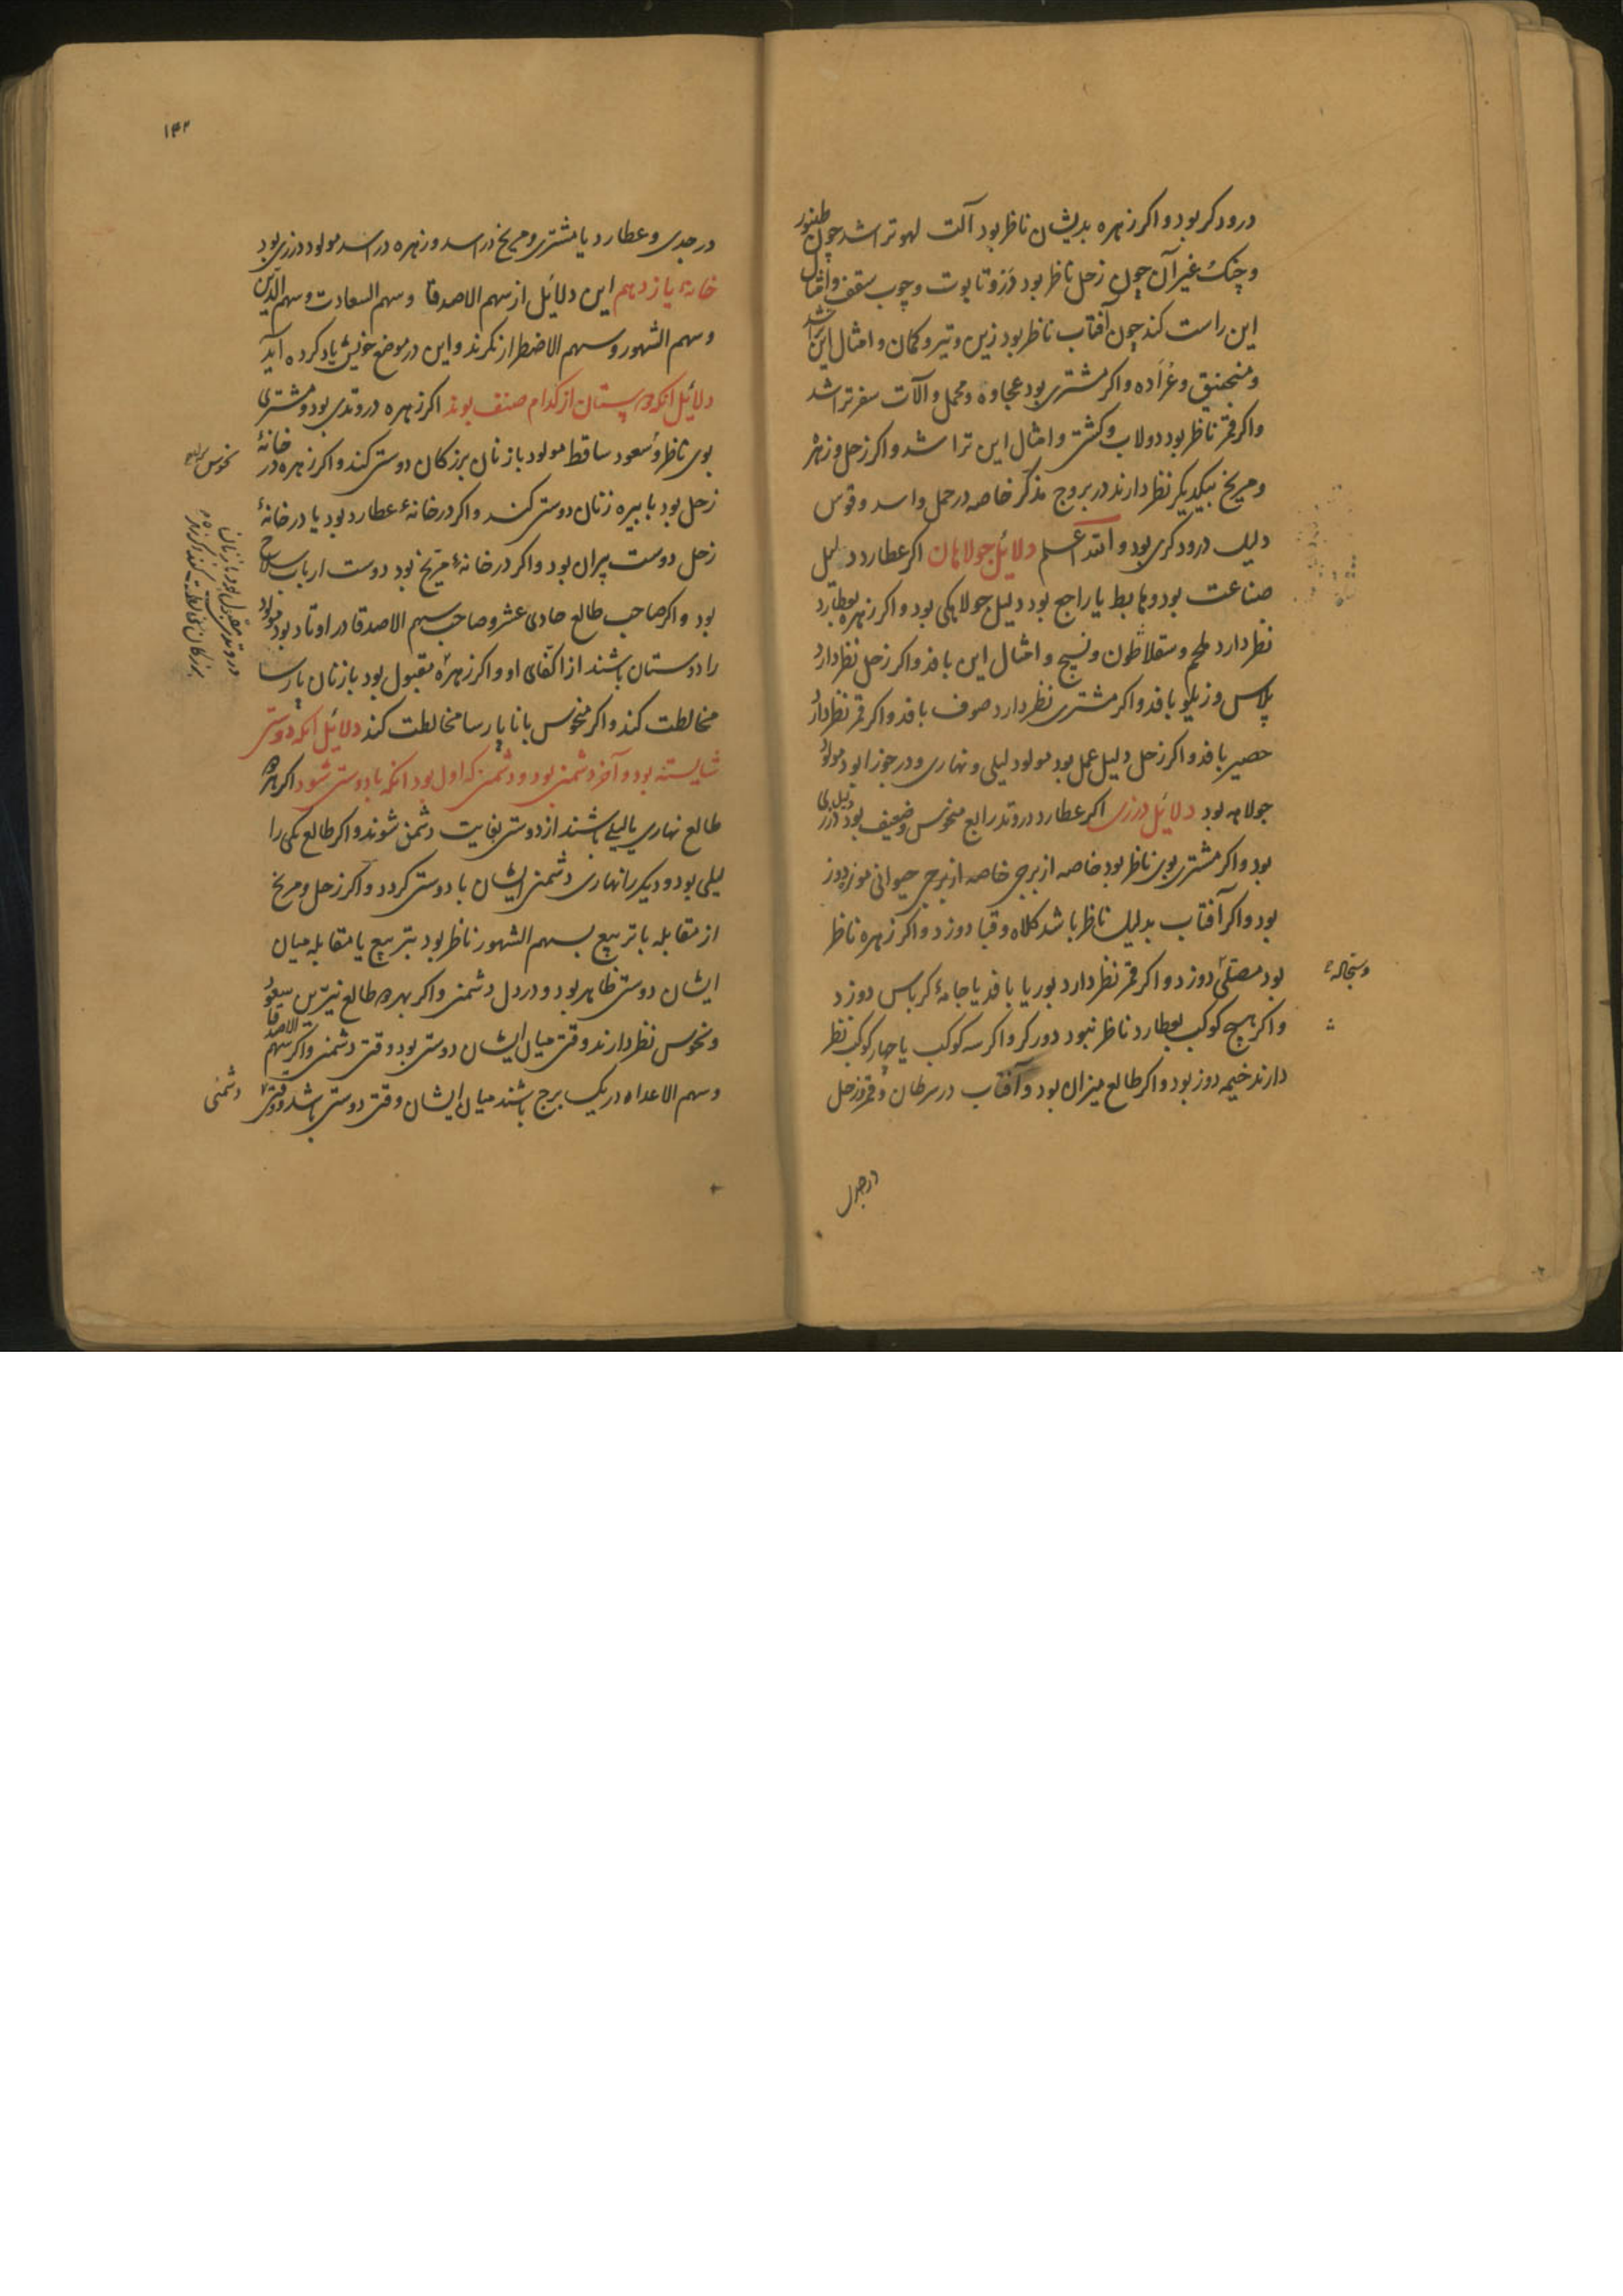 درودکر بود و اکر زهره بدیشان ناظر بود آلت لهو تراشد چون طنبور
و چنک غیر آن چون زحل ناظر بود و تابوت و چوب سقف و امثال
این راست کند چون آفتاب ناظر بود زین و تیر و کمان و امثال این تراشد
و منجنیق و عرّاده و اکر مشتری بود عجاوه و محمل و آلات سفر تراشد
و اکر قمر ناظر بود دولاب و کشتی و امثال این تراشد و اکر زحل و زهره
و مریخ بیکدیکر نظر دارند در بروج مذکر خاصه در حمل و اسد و قوس
دلیل درودکری بود و الله اعلم دلائل جولاهان اکر عطارد دلیل
صناعت بود و هابط یا راجع بود دلیل جولاهکی بود و اکر زهره بعطارد
نظر دارد ملحم و سقلاطون و نسیج و امثال این بافد و اکر زحل نظر دارد
پلاس و زیلو بافد و اکر مشتری نظر دارد صوف بافد و اکر قمر نظر دارد
حصیر بافد و اکر زحل دلیل عمل بود مولود لیلی و نهاری و در جوزا بود مولود
جولاهه بود دلائل درزی اکر عطارد در وتد رابع منحوس و ضعیف بود دلیل درزی
بود و اکر مشتری بوی ناظر بود خاصه از برجی خاصه از برجی حیوانی موزه دوز
بود و اکر آفتاب بدلیل ناظر باشد کلاه و قبا دوزد و اکر زهره ناظر
بود مصلّی دوزد و اکر قمر نظر دارد بوریا بافد یا جامهٔ کرباس دوزد
و اکر هیچ کوکب بعطارد ناظر نبود دورکر و اکر سه کوکب یا چهار کوکب نظر
دارند خیمه دوز بود و اکر طالع میزان بود و آفتاب در سرطان و قمر و زحل
در جدی
۱۴۲
در جدی و عطارد یا مشتری و مریخ در اسد و زهره در اسد مولود درزی بود
خانهٔ یازدهم این دلائل از سهم الاصدقا و سهم السعادت و سهم الدّین
و سهم الشهور و سهم الاضطرار نکرند و این در موضع خویش یاد کرده آید
دلائل انکه دوستان از کدام صنف بوند اکر زهره در وتدی بود و مشتری
بوی ناظر و سعود ساقط مولود با زنان بزرکان دوستی کند و اکر زهره در خانهٔ
زحل بود با پیره زنان دوستی کند و اکر در خانهٔ عطارد بود یا در خانهٔ
زحل دوست پیران بود و اکر در خانهٔ مریخ بود دوست ارباب سلاح
بود و اکر صاحب طالع حادی عشر و صاحب سهم الاصدقا در اوتاد بود مولود
را دوستان باشند از اکفای او و اکر زهره مقبول بود با زنان پارسا
مخالطت کند و اکر منحوس با ناپارسا مخالطت کند دلائل انکه دوستی
شایسته بود و آخر دشمنی بود و دشمنی که اول بود انکه با دوستی شود اکر هر دو
طالع نهاری یا لیلی باشند از دوستی بغایت دشمن شوند و اکر طالع یکی را
لیلی بود و دیکر را نهاری دشمنی ایشان با دوستی کردد و اکر زحل و مریخ
از مقابله یا تربیع بسهم الشهور ناظر بود بتربیع یا مقابله میان
ایشان دوستی ظاهر بود و در دل دشمنی و اکر بهر دو طالع نیّرین سعود
و نحوس نظر دارند وقتی میان ایشان دوستی بود و وقتی دشمنی و اکر سهم الاصدقا
و سهم الاعداء در یک برج باشند میان ایشان وقتی دوستی باشد و وقتی
دشمنی